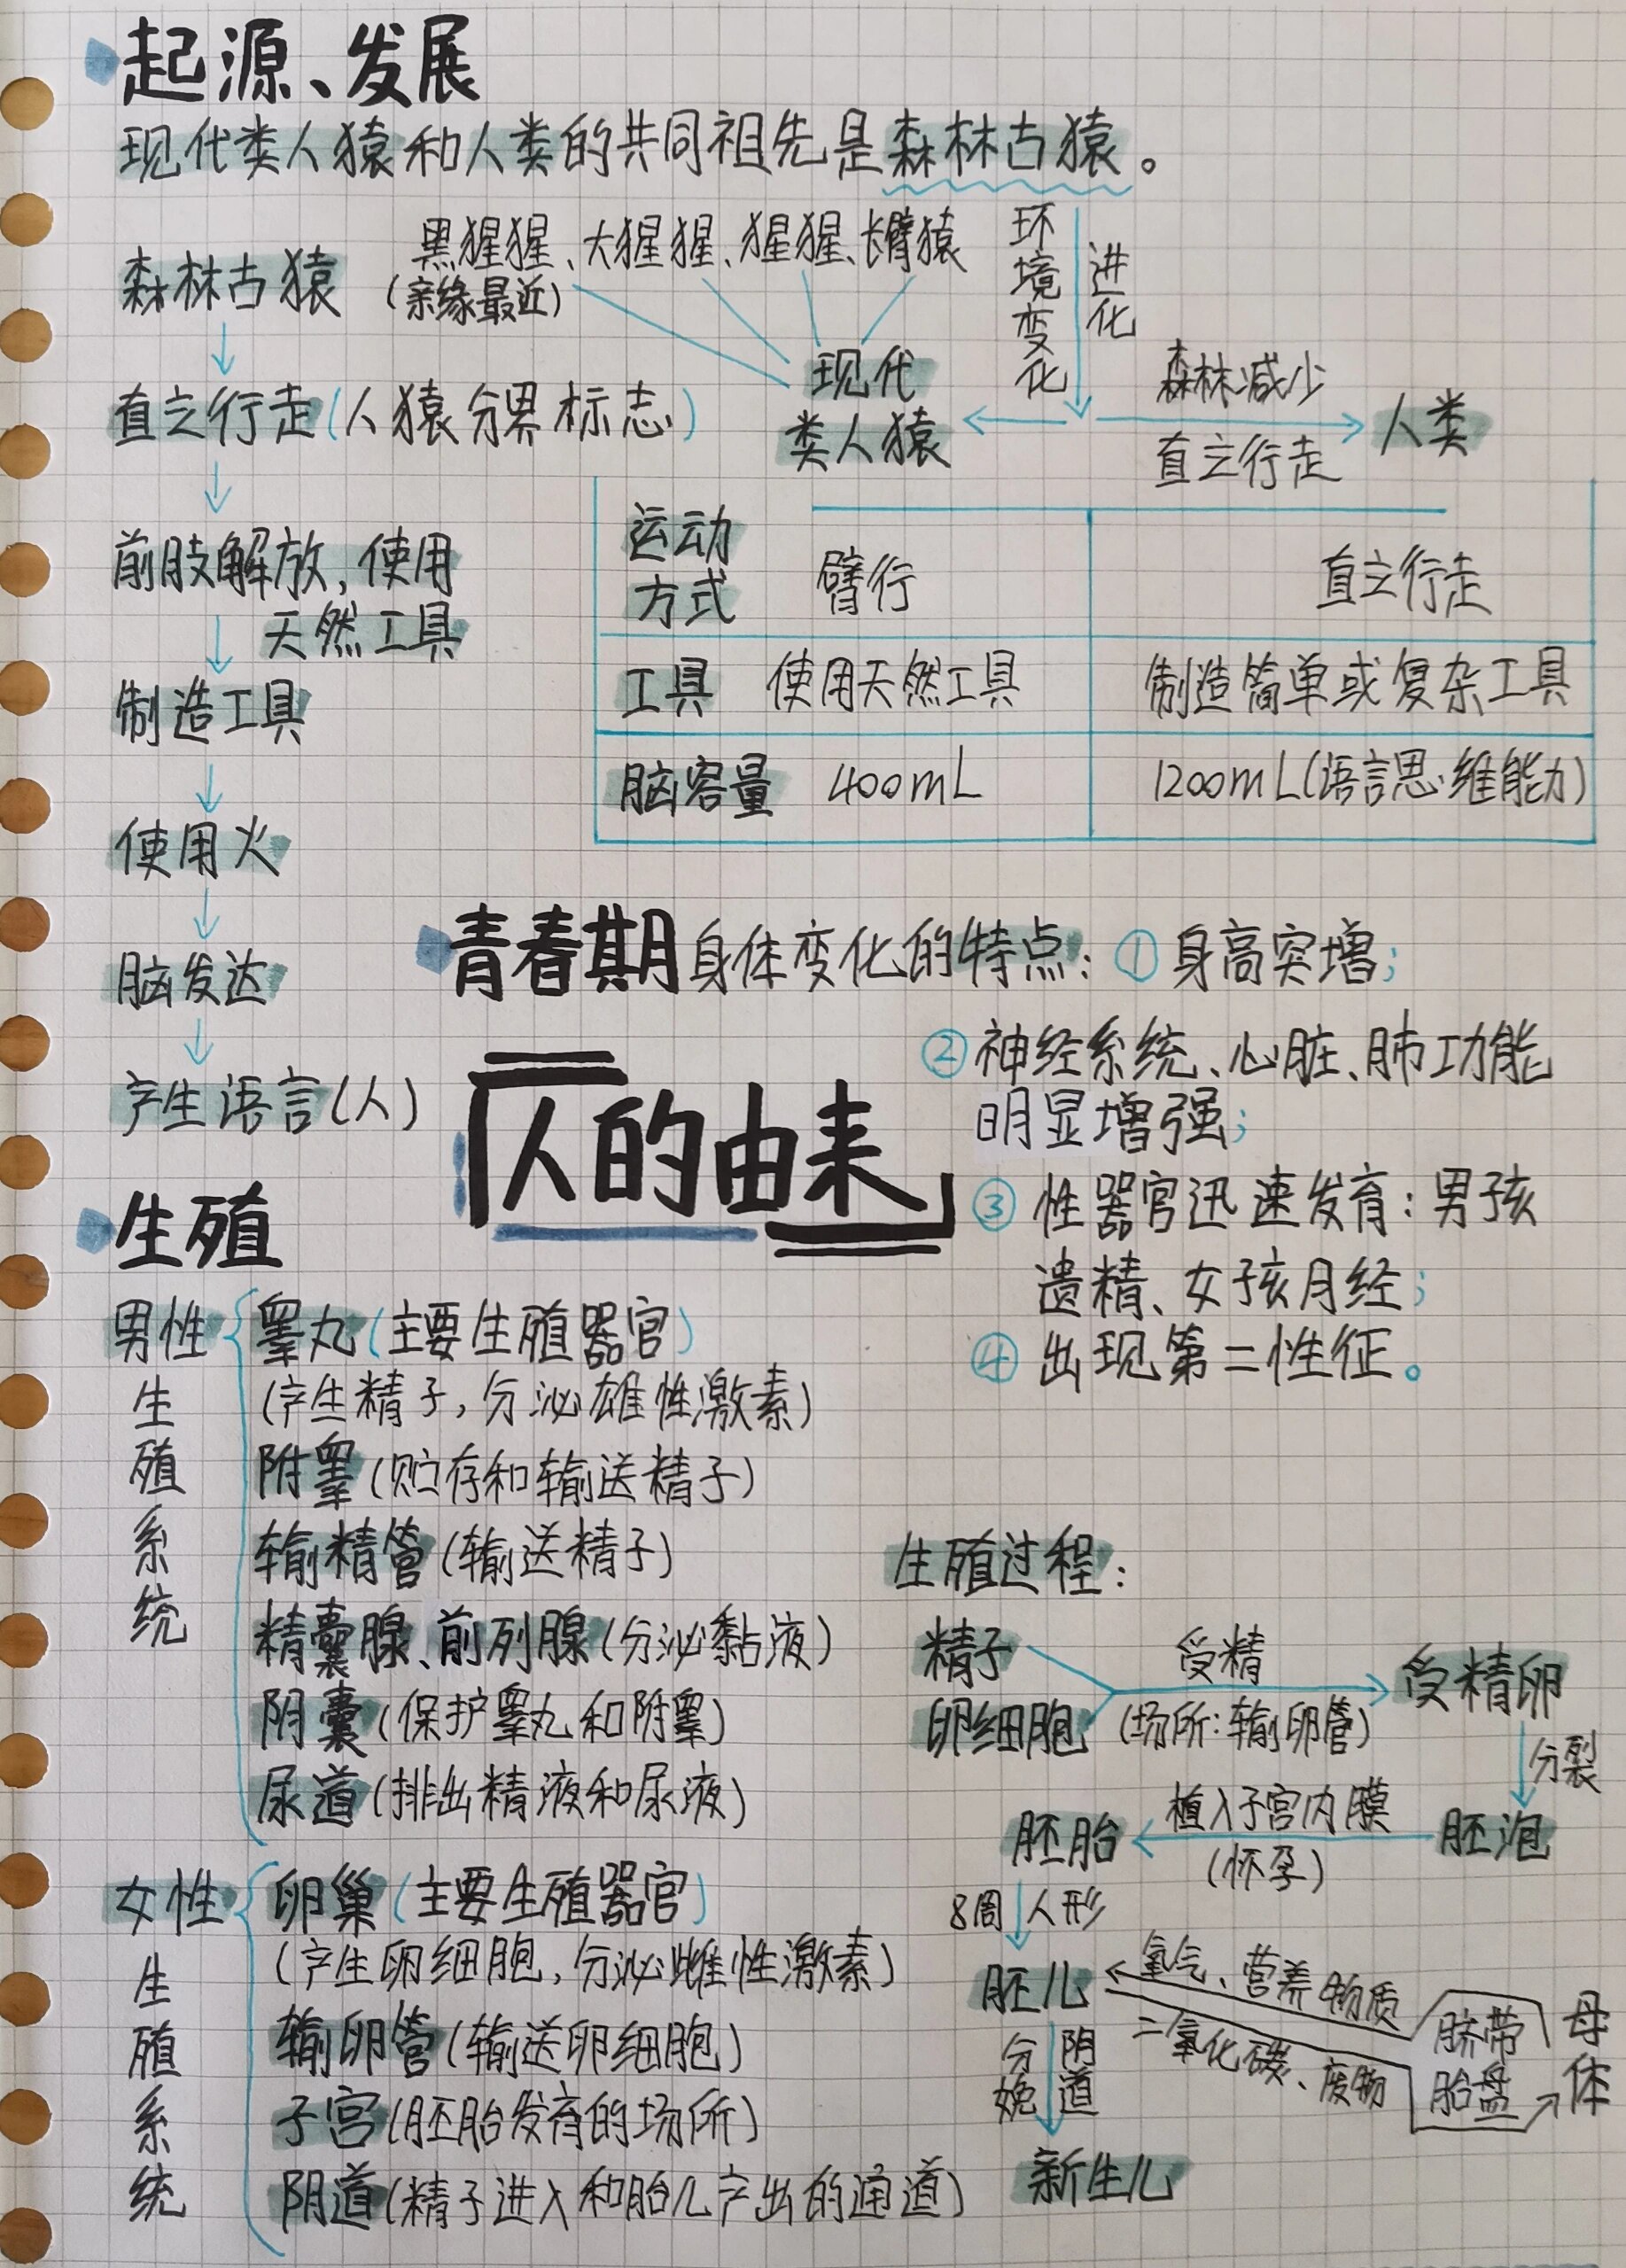 起源、发展
现代类人猿和人类的共同祖先是森林古猿。
森林古猿
直立行走(人猿分界标志)
前肢解放,使用
天然工具
制造工具
使用火
脑发达
产生语言(人)
黑猩猩、大猩猩、猩猩、长臂猿
(亲缘最近)
现代
类人猿
环境变化
进化
森林减少
直立行走
人类
运动
方式
臂行
直立行走
工具
使用天然工具
制造简单或复杂工具
脑容量
400mL
1200mL(语言思维能力)
青春期身体变化的特点:①身高突增;
②神经系统、心脏、肺功能
明显增强;
③性器官迅速发育:男孩
遗精、女孩月经;
④出现第二性征。
人的由来
生殖
男性
生殖系统
睾丸(主要生殖器官)
(产生精子,分泌雄性激素)
附睾(贮存和输送精子)
输精管(输送精子)
精囊腺、前列腺(分泌黏液)
阴囊(保护睾丸和附睾)
尿道(排出精液和尿液)
女性
生殖系统
卵巢(主要生殖器官)
(产生卵细胞,分泌雌性激素)
输卵管(输送卵细胞)
子宫(胚胎发育的场所)
阴道(精子进入和胎儿产出的通道)
生殖过程:
精子
卵细胞
受精
(场所:输卵管)
受精卵
分裂
胚泡
植入子宫内膜
(怀孕)
胚胎
8周 人形
胚儿
氧气、营养物质
二氧化碳、废物
脐带
胎盘
母体
分娩
阴道
新生儿